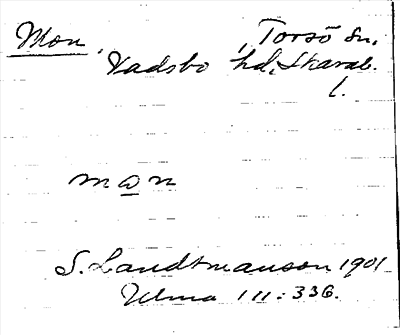 Mon, Torsö sn,
Vadsbo hd, Skarab.
l.
man
S. Landtmanson 1901
Ulma 111:336.